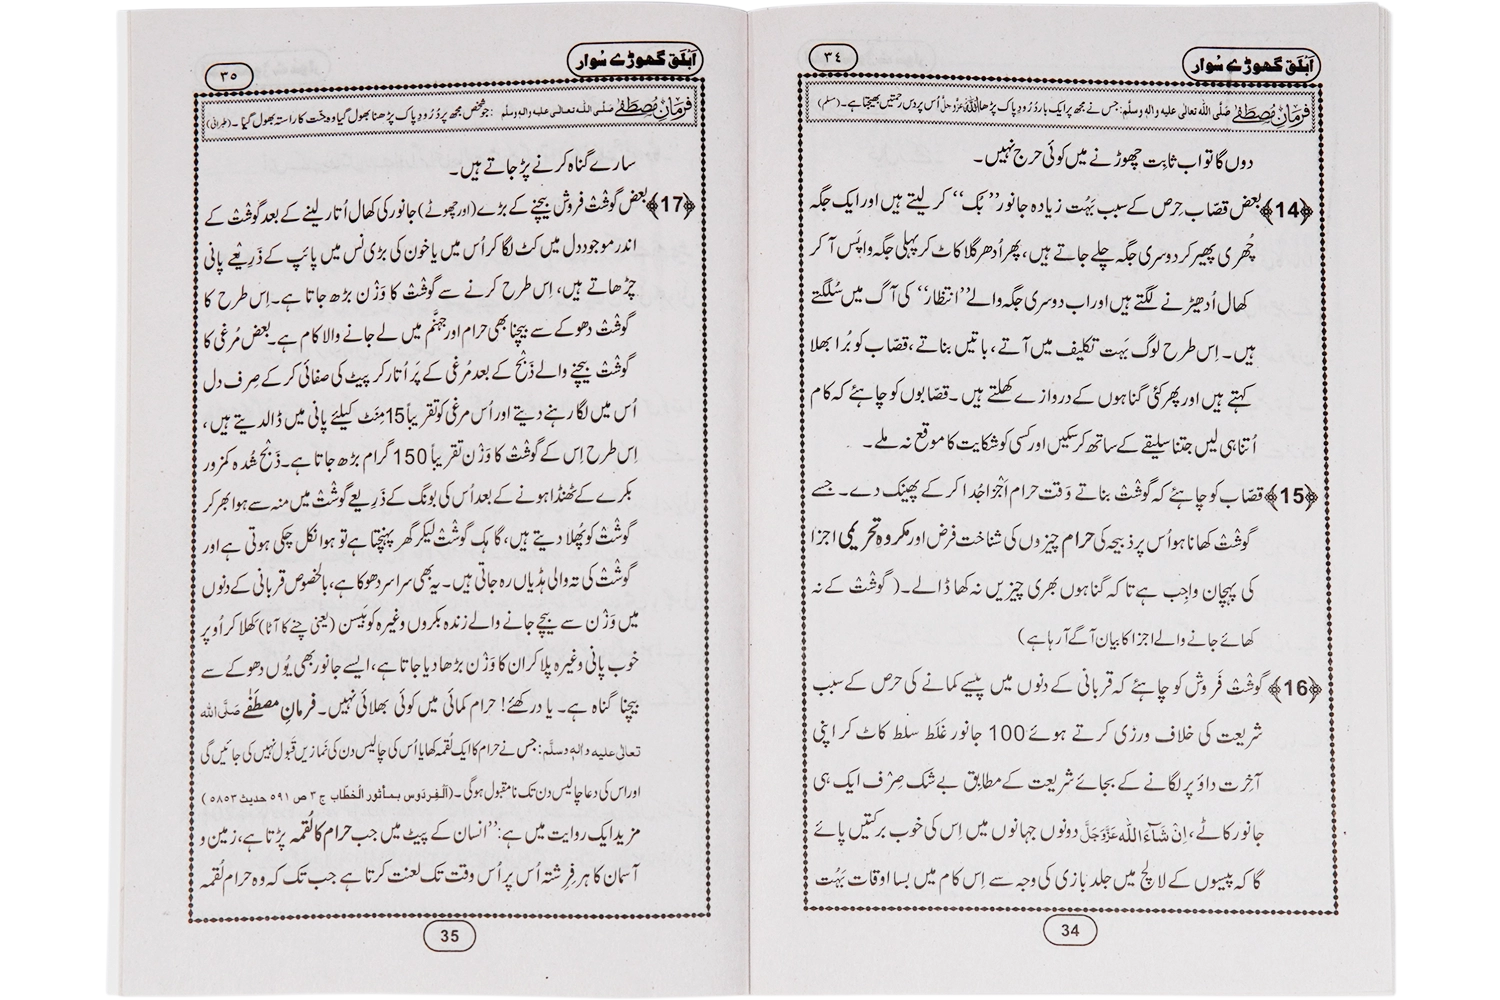 اَبْلَق گھوڑے سُوار
٣٤
فرمانِ مُصطَفٰے صَلَّی اللہ تعالٰی علیہ واٰلہ وسلّم: جس نے مجھ پر ایک بار دُرُودِ پاک پڑھا اللہ عَزَّوَجَلَّ اُس پر دس رحمتیں بھیجتا ہے۔ (مسلم)
دوں گا تو اب ثابِت چھوڑنے میں کوئی حرج نہیں۔
﴿14﴾ بعض قصّاب حِرص کے سبب بَہُت زیادہ جانور ‘‘بُک’’ کر لیتے ہیں اور ایک جگہ
چُھری پھیر کر دوسری جگہ چلے جاتے ہیں، پھر اُدھر گلا کاٹ کر پہلی جگہ واپَس آ کر
کھال اُدھیڑنے لگتے ہیں اور اب دوسری جگہ والے ‘‘انتظار’’ کی آگ میں سُلگتے
ہیں۔ اِس طرح لوگ بَہُت تکلیف میں آتے، باتیں بناتے، قصّاب کو بُرا بھلا
کہتے ہیں اور پھر کئی گناہوں کے دروازے کھلتے ہیں۔ قصّابوں کو چاہئے کہ کام
اُتنا ہی لیں جتنا سلیقے کے ساتھ کر سکیں اور کسی کو شکایت کا موقع نہ ملے۔
﴿15﴾ قصّاب کو چاہئے کہ گوشْتْ بناتے وَقت حرام اَجْزا جُدا کر کے پھینک دے۔ جسے
گوشْتْ کھانا ہو اُس پر ذبیحہ کی حرام چیزوں کی شناخت فرض اور مکروہِ تحریمی اجزا
کی پہچان واجِب ہے تاکہ گناہوں بھری چیزیں نہ کھا ڈالے۔ (گوشْتْ کے نہ
کھائے جانے والے اجزا کا بیان آگے آرہا ہے)
﴿16﴾ گوشْتْ فَروش کو چاہئے کہ قربانی کے دنوں میں پیسے کمانے کی حرص کے سبب
شریعت کی خلاف ورزی کرتے ہوئے 100 جانور غَلَط سلط کاٹ کر اپنی
آخِرت داؤ پر لگانے کے بجائے شریعت کے مطابق بے شک صِرْف ایک ہی
جانور کاٹے، اِنْ شَآءَ اللّٰہ عَزَّوَجَلَّ دونوں جہانوں میں اِس کی خوب برکتیں پائے
گا کہ پیسوں کے لالچ میں جلد بازی کی وجہ سے اِس کام میں بسا اوقات بَہُت
34
اَبْلَق گھوڑے سُوار
٣٥
فرمانِ مُصطَفٰے صَلَّی اللہ تعالٰی علیہ واٰلہ وسلّم: جو شخص مجھ پر دُرُودِ پاک پڑھنا بھول گیا وہ جنّت کا راستہ بھول گیا۔ (طبرانی)
سارے گناہ کرنے پڑ جاتے ہیں۔
﴿17﴾ بعض گوشْتْ فروش بیچنے کے بڑے (اور چھوٹے) جانور کی کھال اُتار لینے کے بعد گوشْتْ کے
اندر موجود دل میں کٹ لگا کر اُس میں یا خون کی بڑی نس میں پائپ کے ذَرِیعے پانی
چڑھاتے ہیں، اِس طرح کرنے سے گوشْتْ کا وَزْن بڑھ جاتا ہے۔ اِس طرح کا
گوشْتْ دھوکے سے بیچنا بھی حرام اور جہنَّم میں لے جانے والا کام ہے۔ بعض مُرغی کا
گوشْتْ بیچنے والے ذَبْح کے بعد مُرغی کے پَر اُتار کر پیٹ کی صفائی کر کے صِرف دل
اُس میں لگا رہنے دیتے اور اُس مرغی کو تقریباً 15 مِنَٹ کیلئے پانی میں ڈالدیتے ہیں،
اِس طرح اِس کے گوشْتْ کا وَزْن تقریباً 150 گرام بڑھ جاتا ہے۔ ذَبْح شُدہ کمزور
بکرے کے ٹھنڈا ہونے کے بعد اُس کی بونگ کے ذَرِیعے گوشْتْ میں منہ سے ہوا بھر کر
گوشْتْ کو پُھلا دیتے ہیں، گاہک گوشْتْ لیکر گھر پہنچتا ہے تو ہوا نکل چکی ہوتی ہے اور
گوشْتْ کی تہ والی ہڈیاں رہ جاتی ہیں۔ یہ بھی سراسر دھوکا ہے، بالخصوص قربانی کے دنوں
میں وَزْن سے بیچے جانے والے زندہ بکروں وغیرہ کو بَیسن (یعنی چنے کا آٹا) کھلا کر اُوپر
خوب پانی وغیرہ پلا کر ان کا وَزْن بڑھا دیا جاتا ہے، ایسے جانور بھی یُوں دھوکے سے
بیچنا گناہ ہے۔ یاد رکھئے! حرام کمائی میں کوئی بھلائی نہیں۔ فرمانِ مصطَفٰے صَلَّی اللہ
تعالٰی علیہ واٰلہٖ وسلَّم: جس نے حرام کا ایک لُقمہ کھایا اُس کی چالیس دن کی نَمازیں قَبول نہیں کی جائیں گی
اور اس کی دعا چالیس دن تک نامقبول ہوگی۔ (اَلْفِردَوس بمأثور الْخطّاب ج ٣ ص ٥٩١ حدیث ٥٨٥٣)
مزید ایک روایت میں ہے: ‘‘انسان کے پیٹ میں جب حرام کا لُقمہ پڑتا ہے، زمین و
آسمان کا ہر فِرِشتہ اُس پر اُس وقت تک لعنت کرتا ہے جب تک کہ وہ حرام لُقمہ
35